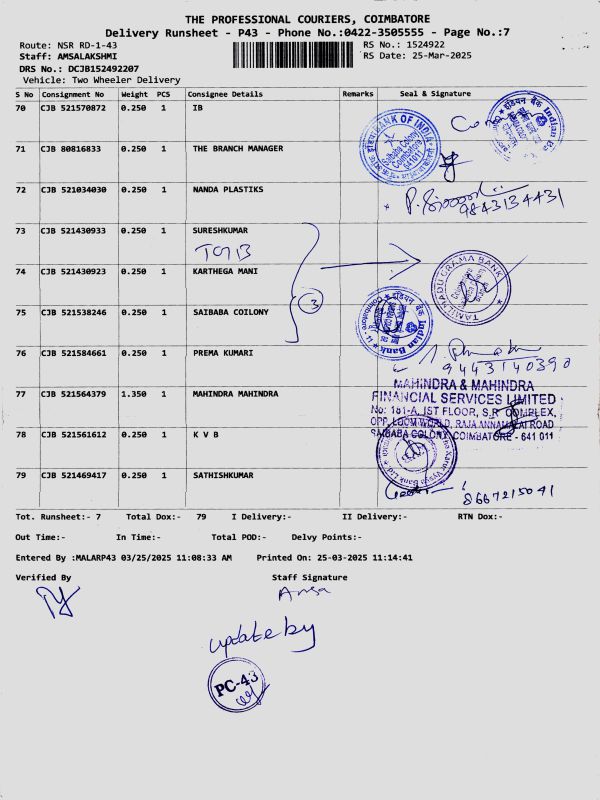 THE PROFESSIONAL COURIERS, COIMBATORE
Delivery Runsheet - P43 - Phone No.:0422-3505555 - Page No.:7
Route: NSR RD-1-43
RS No.: 1524922
Staff: AMSALAKSHMI
RS Date: 25-Mar-2025
DRS No.: DCJB152492207
Vehicle: Two Wheeler Delivery
S No Consignment No Weight PCS Consignee Details Remarks Seal & Signature
70 CJB 521570872 0.250 1 IB
BANK OF INDIA
Saibaba Colony
Coimbatore
इंडियन बैंक Indian Bank
71 CJB 80816833 0.250 1 THE BRANCH MANAGER
72 CJB 521034030 0.250 1 NANDA PLASTIKS
9843134431
73 CJB 521430933 0.250 1 SURESHKUMAR
TGB
TAMILNADU GRAMA BANK
74 CJB 521430923 0.250 1 KARTHEGA MANI
3
75 CJB 521538246 0.250 1 SAIBABA COILONY
इंडियन बैंक Indian Bank
Coimbatore - 11
76 CJB 521584661 0.250 1 PREMA KUMARI
9443140390
77 CJB 521564379 1.350 1 MAHINDRA MAHINDRA
MAHINDRA & MAHINDRA
FINANCIAL SERVICES LIMITED
No: 181-A, IST FLOOR, S.R. COMPLEX,
OPP. LOOM WORLD, RAJA ANNAMALAI ROAD
SAIBABA COLONY COIMBATORE - 641 011
78 CJB 521561612 0.250 1 K V B
Karur Vysya Bank Ltd
79 CJB 521469417 0.250 1 SATHISHKUMAR
8667215041
Tot. Runsheet:- 7 Total Dox:- 79 I Delivery:- II Delivery:- RTN Dox:-
Out Time:- In Time:- Total POD:- Delvy Points:-
Entered By :MALARP43 03/25/2025 11:08:33 AM Printed On: 25-03-2025 11:14:41
Verified By Staff Signature
Amsa
update by
PC-43